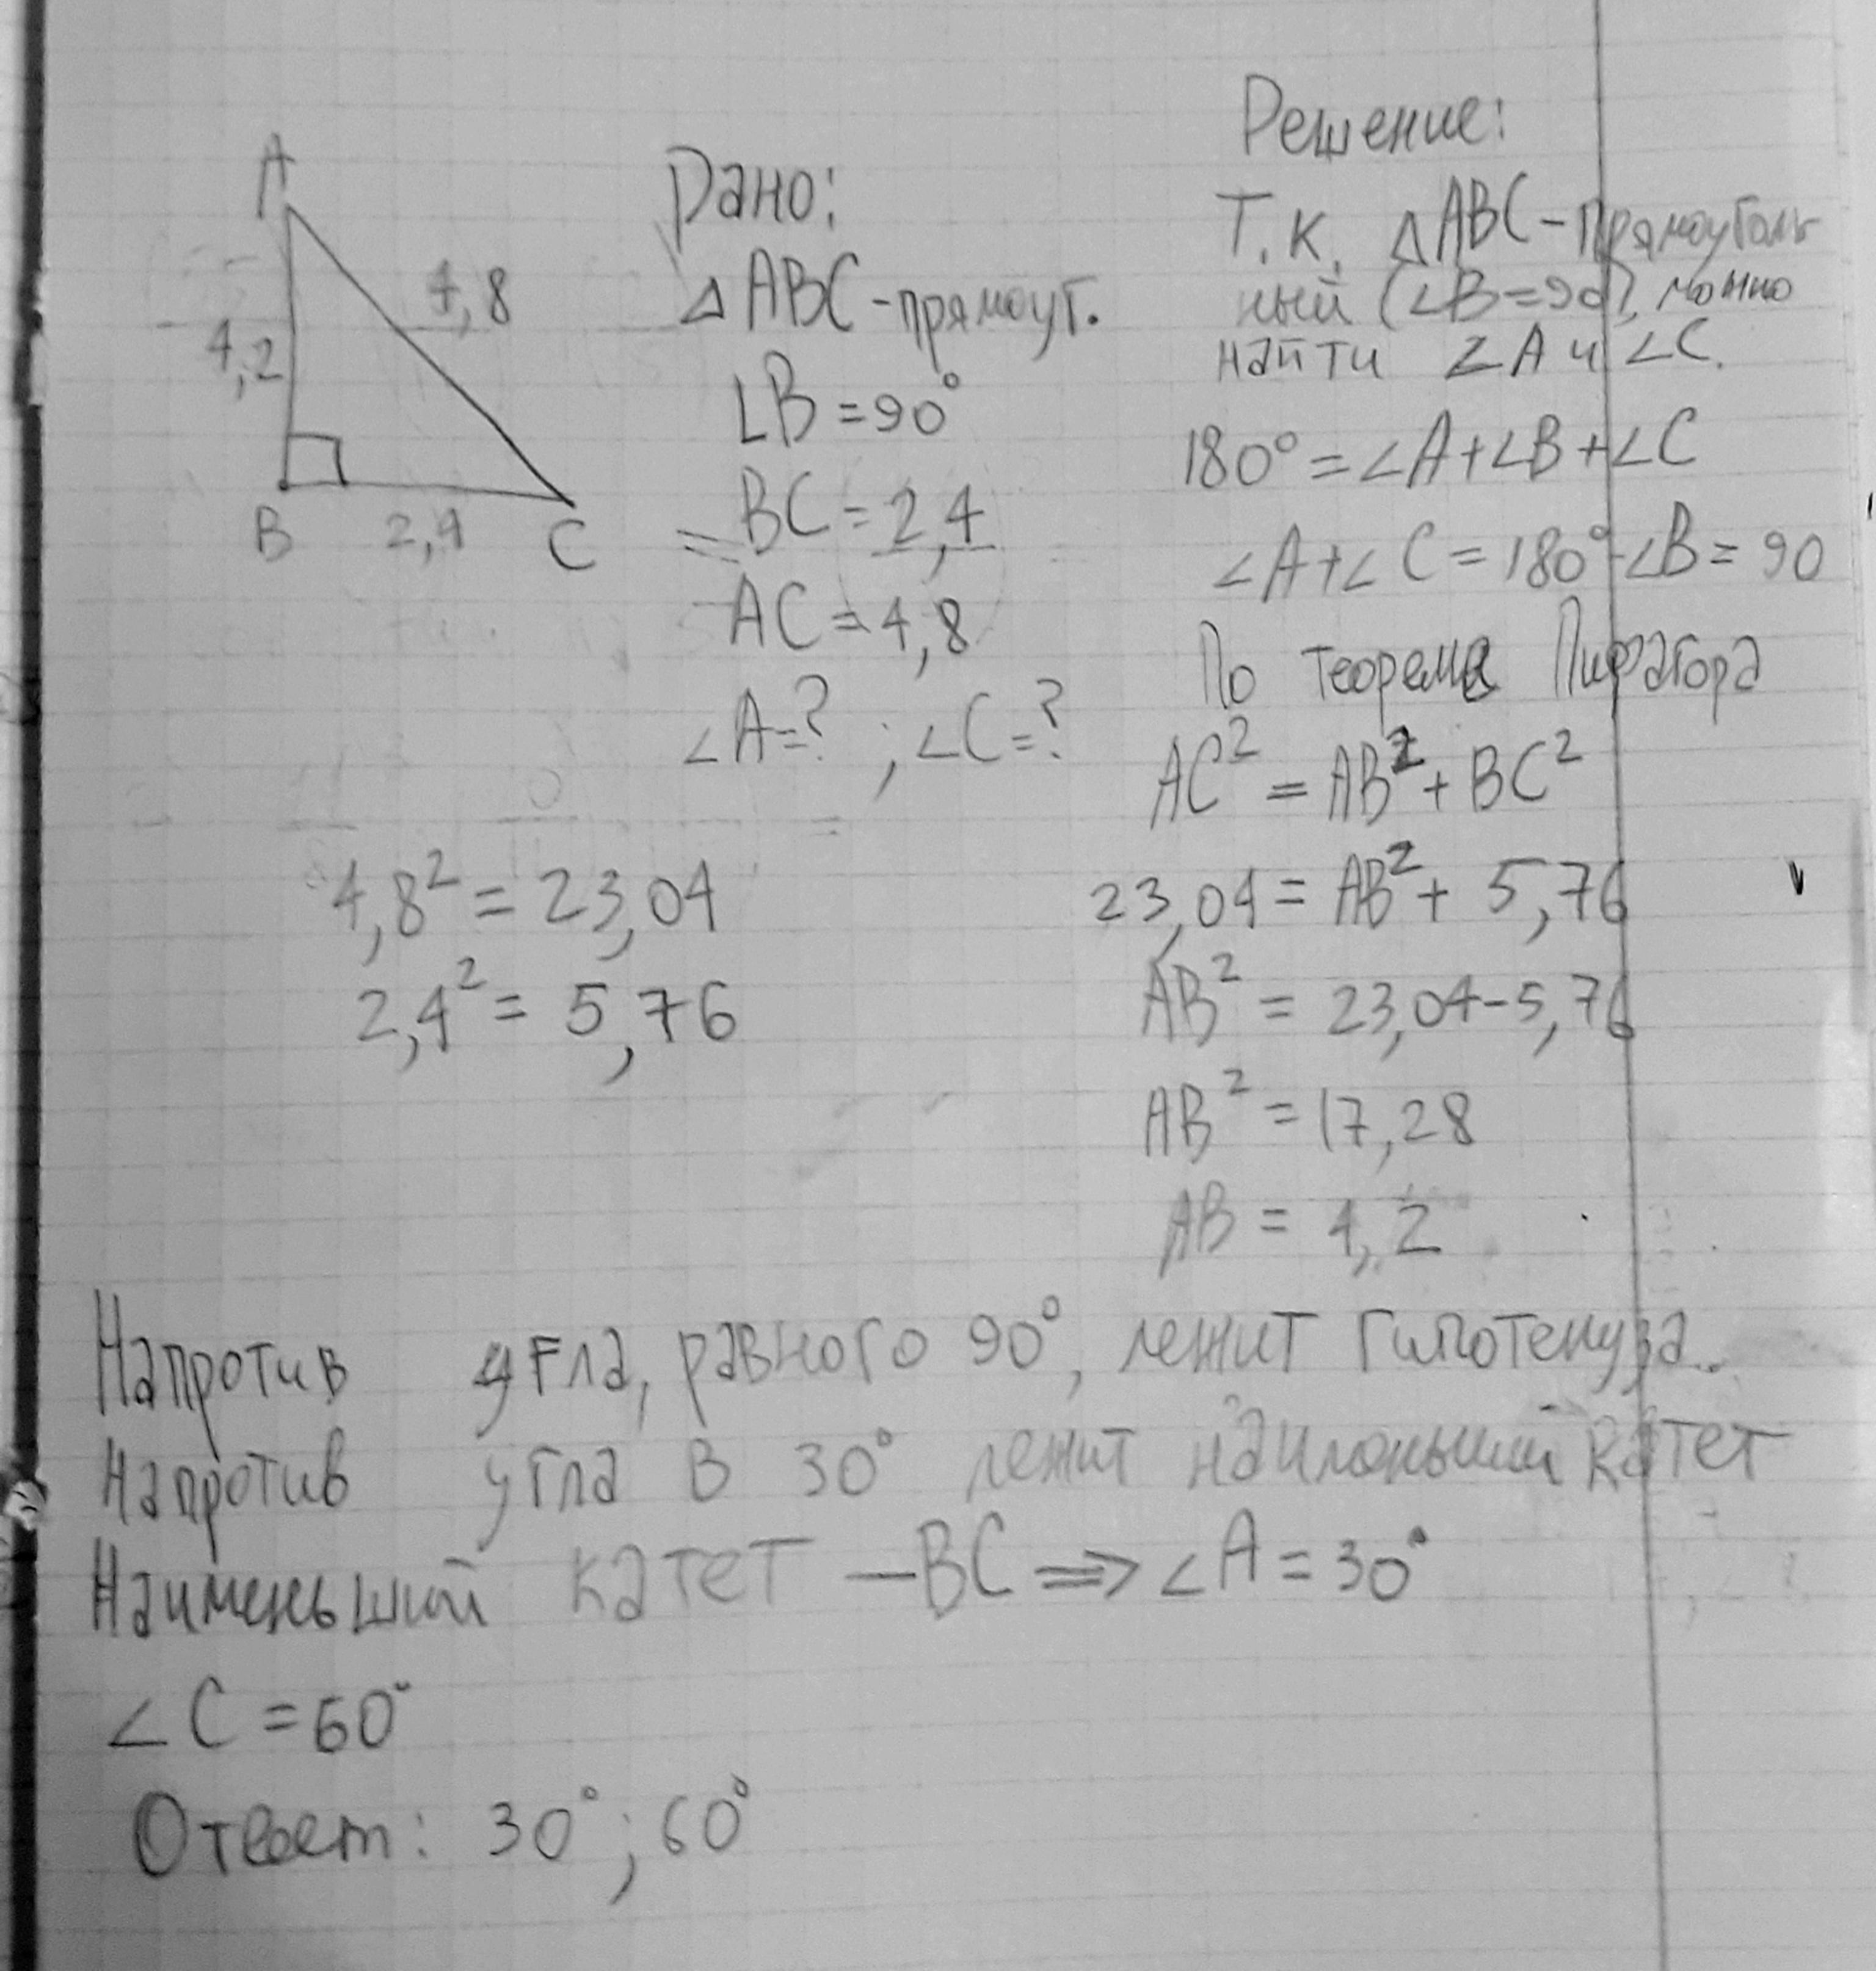 A
4,8
4,2
B
2,4
C
Дано:
△ABC - прямоуг.
∠B = 90°
BC = 2,4
AC = 4,8
∠A = ? ; ∠C = ?
4,8² = 23,04
2,4² = 5,76
Решение:
Т.к. △ABC - прямоуголь
ный (∠B = 90), можно
найти ∠A и ∠C.
180° = ∠A + ∠B + ∠C
∠A + ∠C = 180° - ∠B = 90
По теореме Пифагора
AC² = AB² + BC²
23,04 = AB² + 5,76
AB² = 23,04 - 5,76
AB² = 17,28
AB = 4,2
Напротив угла, равного 90°, лежит гипотенуза.
Напротив угла в 30° лежит наименьший катет
Наименьший катет — BC ⇒ ∠A = 30°
∠C = 60°
Ответ: 30°; 60°